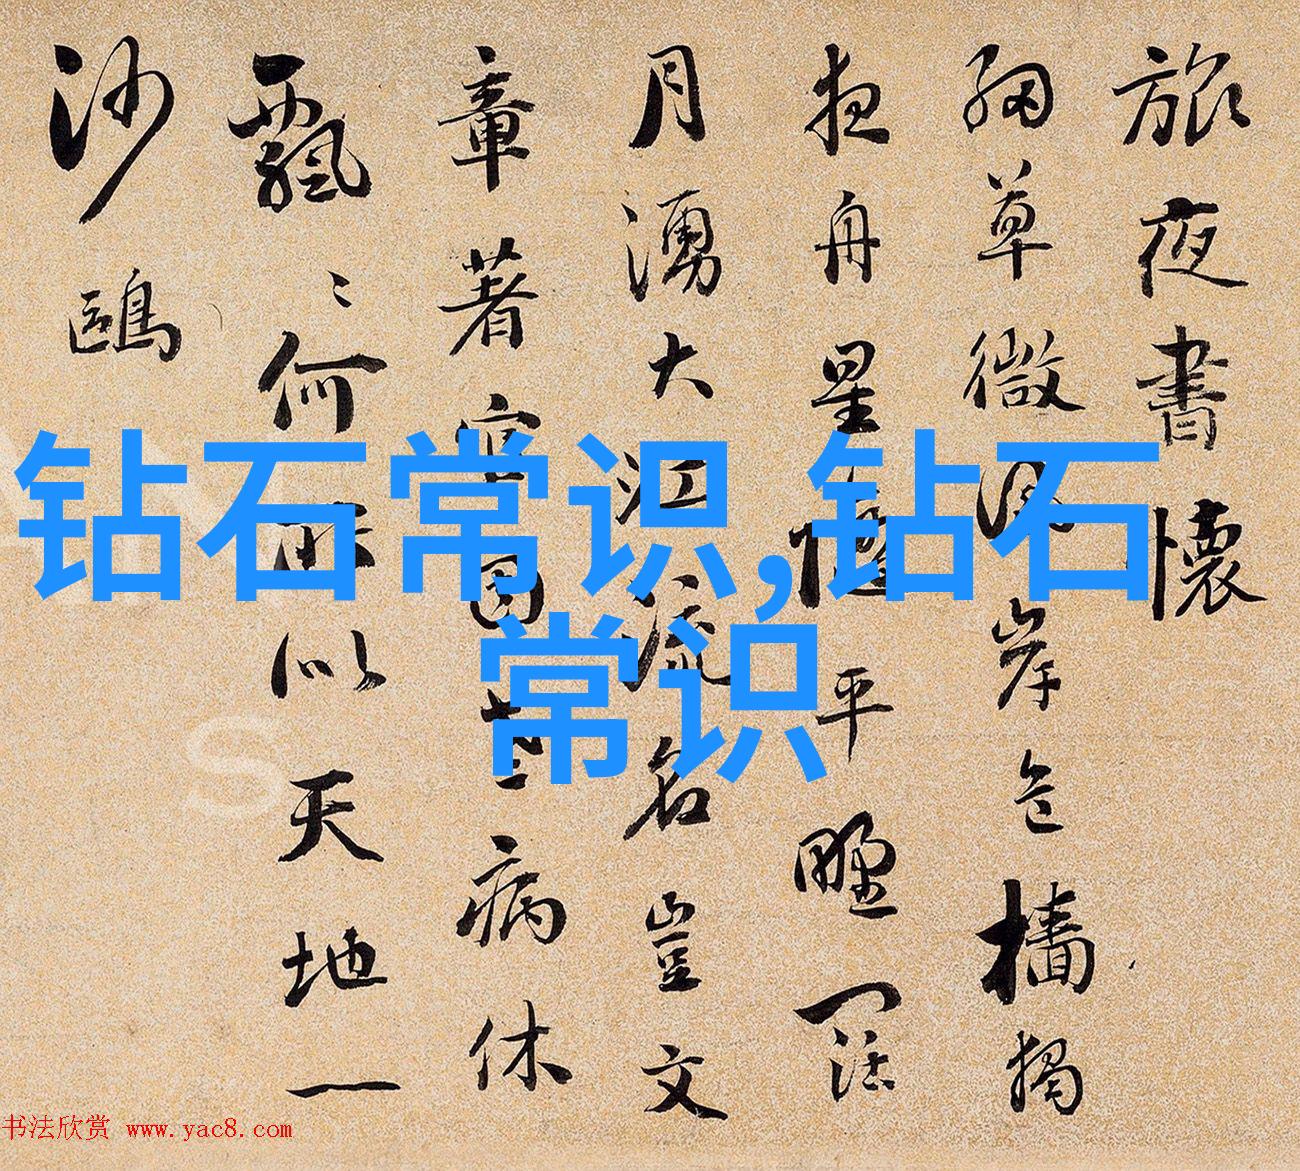 旅夜書懷
細草微風岸危檣獨
夜舟星平野闊
月湧大江流名豈文
章著官因老病休
飄〻何所似天地一
沙鷗
钻石常识,钻石
常识
书法欣赏 www.yac8.com